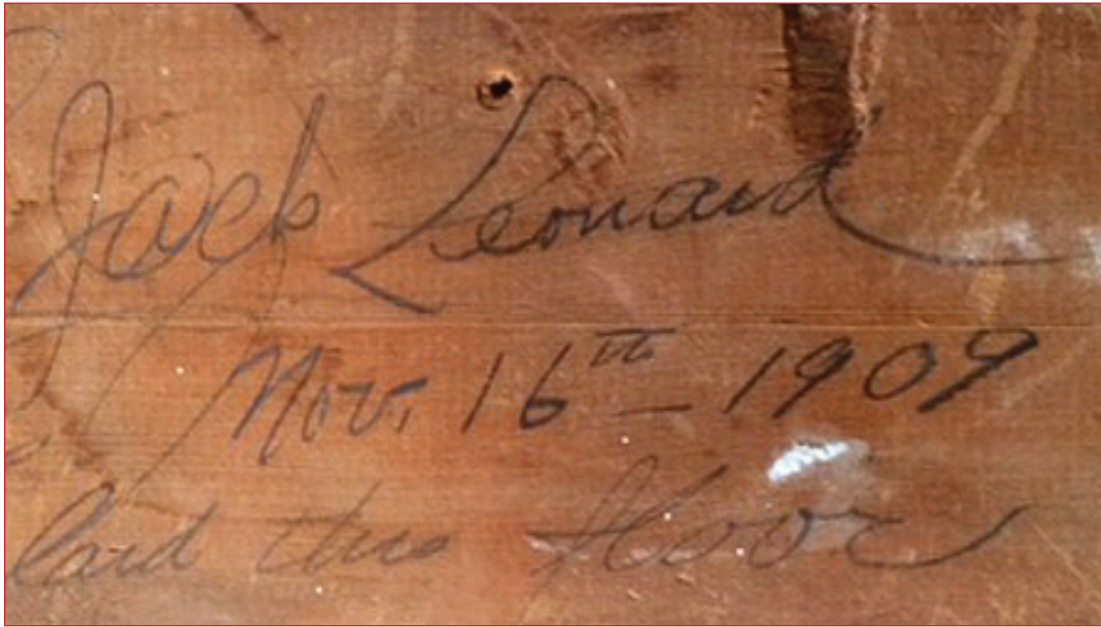 Jack Leonard
Nov. 16th - 1909
laid this floor